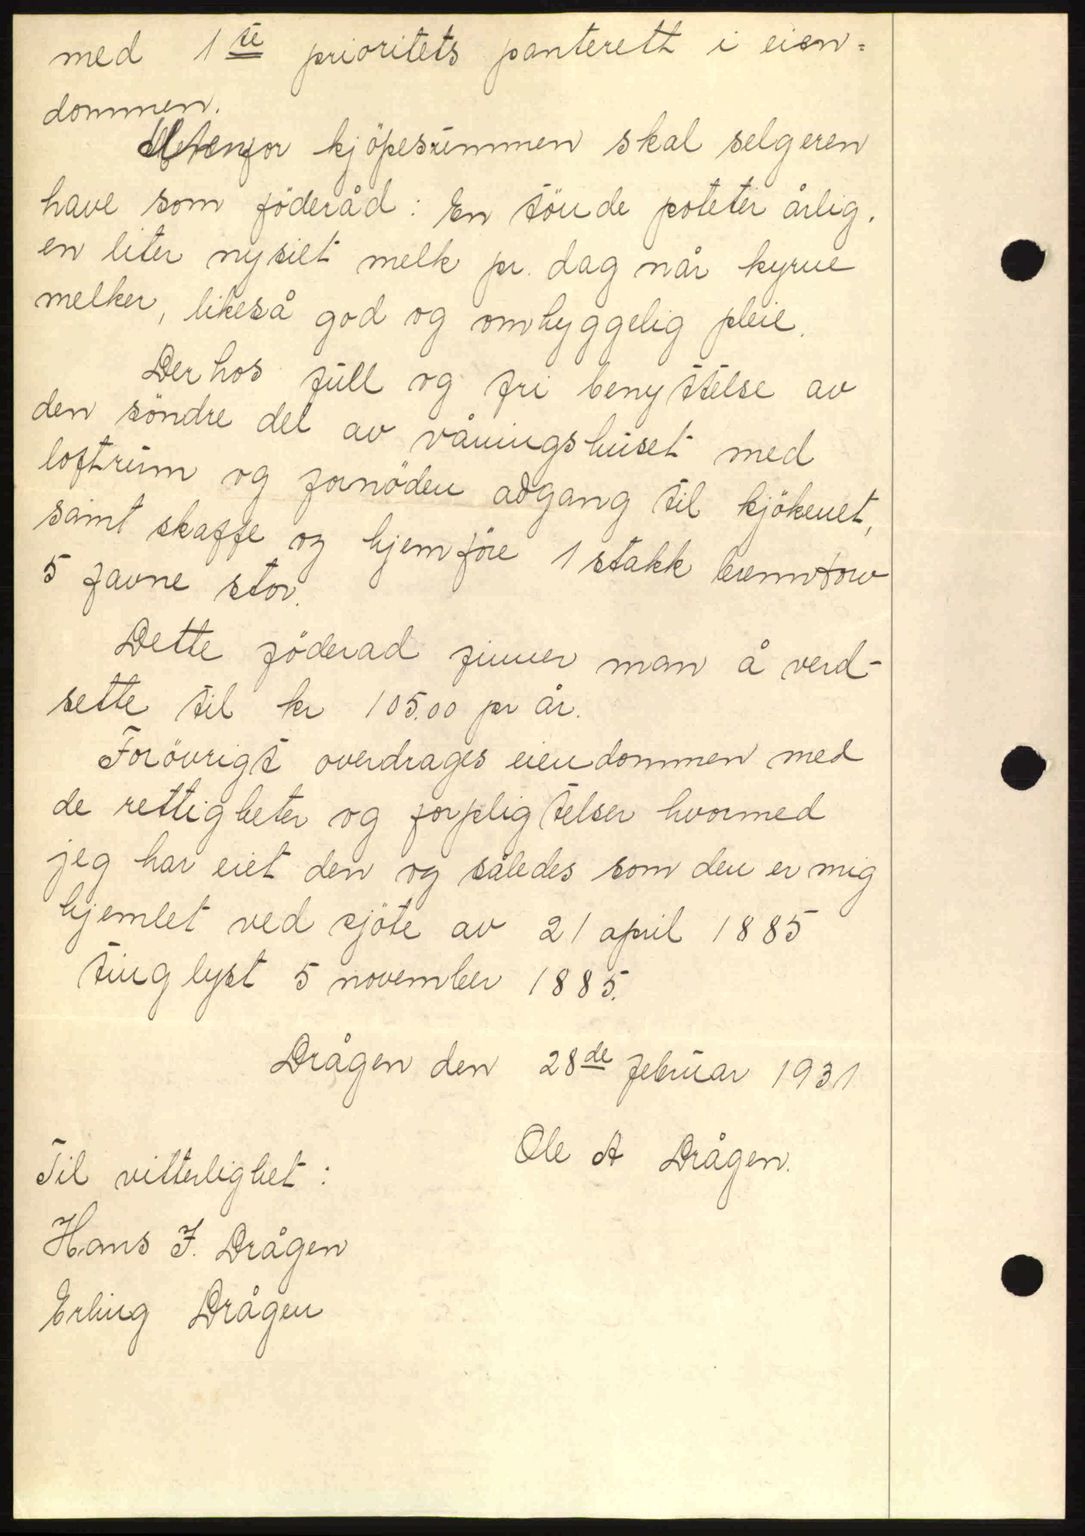 med 1ste prioritets panterett i eien=
dommen.
Utenfor kjöpesummen skal selgeren
have som föderåd: En tönde poteter årlig.
en liter nysilt melk pr. dag når kyrne
melker, likeså god og omhyggelig pleie.
Derhos full og fri benyttelse av
den söndre del av våningshuset med
loftrum og fornöden adgang til kjökenet,
samt skaffe og hjemföre 1 stakk brenntorv
5 favne stor.
Dette föderad finner man å verd-
sette til kr 105.00 pr år.
Forövrigt overdrages eiendommen med
de rettigheter og forpligtelser hvormed
jeg har eiet den og således som den er mig
hjemlet ved sjöte av 21 april 1885
tinglyst 5 november 1885.
Drågen den 28de februar 1931
Ole A Drågen.
Til vitterlighet:
Hans J. Drågen
Erling Drågen